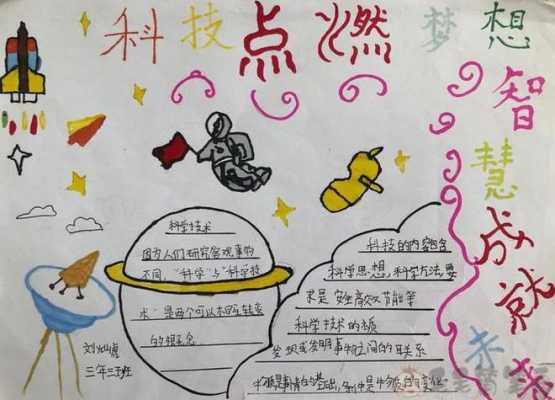 科技点燃梦想
智慧成就未来
科学技术
因为人们研究客观事物
不同，“科学”与“科学技
术”是两个可以相互转变
的概念
科技的内容包含
科学思想，科学方法，要
求是 安全高效节能等
科学技术的本质
发现或发明事物之间的联系
刘灿虎
三年三班